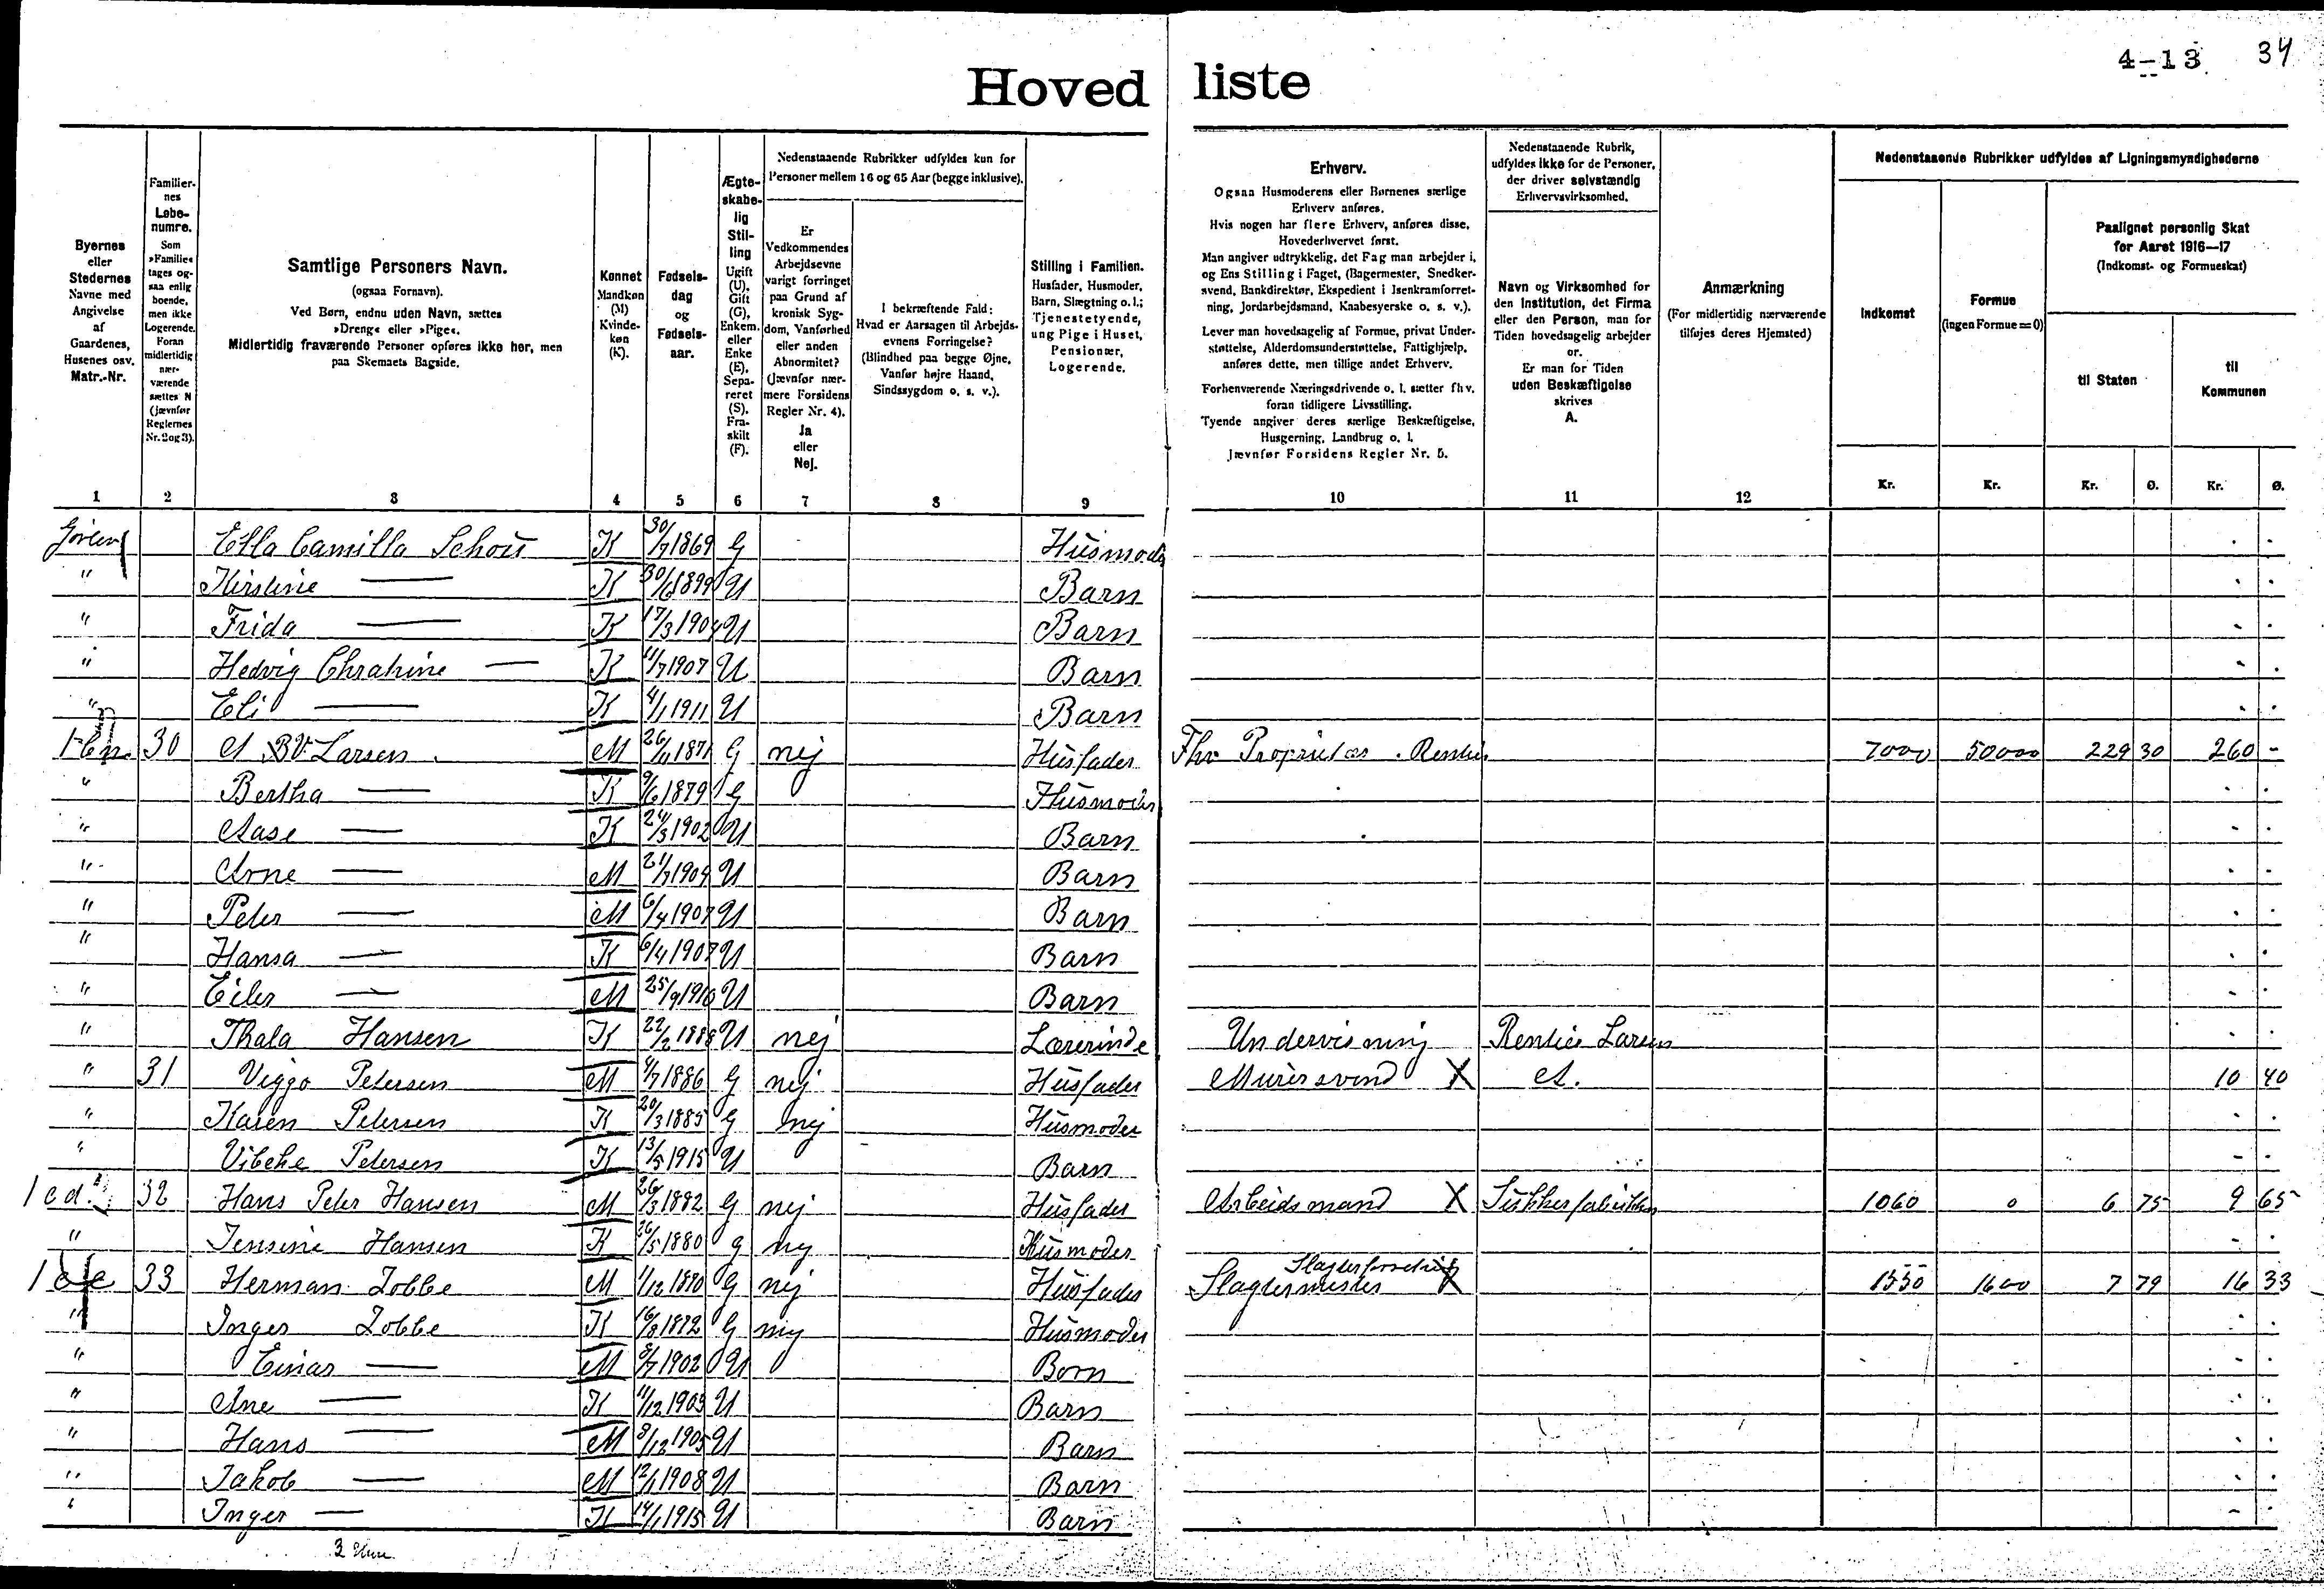 4-13 34
Hovedliste
Nedenstaaende Rubrikker udfyldes kun for
Personer mellem 16 og 65 Aar (begge inklusive).
Nedenstaaende Rubrik,
udfyldes ikke for de Personer,
der driver selvstændig
Erhvervsvirksomhed.
Nedenstaaende Rubrikker udfyldes af Ligningsmyndighederne
Byernes
eller
Stedernes
Navne med
Angivelse
af
Gaardenes,
Husenes osv.
Matr.-Nr.
Familier-
nes
Løbe-
numre.
Som
»Familie«
tages og-
saa enlig
boende,
men ikke
Logerende.
Foran
midlertidig
nær-
værende
sættes N
(jævnfør
Reglernes
Nr. 2 og 3).
Samtlige Personers Navn.
(ogsaa Fornavn).
Ved Børn, endnu uden Navn, sættes
»Dreng« eller »Pige«.
Midlertidig fraværende Personer opføres ikke her, men
paa Skemaets Bagside.
Kønnet
Mandkøn
(M)
Kvinde-
køn
(K).
Fødsels-
dag
og
Fødsels-
aar.
Ægte-
skabe-
lig
Stil-
ling
Ugift
(U).
Gift
(G),
Enkem.
eller
Enke
(E),
Sepa-
reret
(S).
Fra-
skilt
(F).
Er
Vedkommendes
Arbejdsevne
varigt forringet
paa Grund af
kronisk Syg-
dom, Vanførhed
eller anden
Abnormitet?
(Jævnfør nær-
mere Forsidens
Regler Nr. 4).
Ja
eller
Nej.
I bekræftende Fald:
Hvad er Aarsagen til Arbejds-
evnens Forringelse?
(Blindhed paa begge Øjne,
Vanfør højre Haand,
Sindssygdom o. s. v.).
Stilling i Familien.
Husfader, Husmoder,
Barn, Slægtning o. l.;
Tjenestetyende,
ung Pige i Huset,
Pensionær,
Logerende.
Erhverv.
Ogsaa Husmoderens eller Børnenes særlige
Erhverv anføres.
Hvis nogen har flere Erhverv, anføres disse,
Hovederhvervet først.
Man angiver udtrykkelig, det Fag man arbejder i,
og Ens Stilling i Faget, (Bagermester, Snedker-
svend, Bankdirektør, Ekspedient i Isenkramforret-
ning, Jordarbejdsmand, Kaabesyerske o. s. v.).
Lever man hovedsagelig af Formue, privat Under-
støttelse, Alderdomsunderstøttelse, Fattighjælp,
anføres dette, men tillige andet Erhverv.
Forhenværende Næringsdrivende o. l. sætter fhv.
foran tidligere Livsstilling.
Tyende angiver deres særlige Beskæftigelse,
Husgerning, Landbrug o. l.
Jævnfør Forsidens Regler Nr. 5.
Navn og Virksomhed for
den Institution, det Firma
eller den Person, man for
Tiden hovedsagelig arbejder
for.
Er man for Tiden
uden Beskæftigelse
skrives
A.
Anmærkning
(For midlertidig nærværende
tilføjes deres Hjemsted)
Indkomst
Formue
(ingen Formue = 0)
Paalignet personlig Skat
for Aaret 1916—17
(Indkomst- og Formueskat)
til Staten
til
Kommunen
Kr. Kr. Kr. Ø. Kr. Ø.
1 2 3 4 5 6 7 8 9 10 11 12
Gørlev Ella Camilla Schou K 30/7 1869 G Husmoder
" Kirstine — K 30/6 1899 U Barn
" Frida — K 17/3 1904 U Barn
" Hedvig Chratrine — K 11/7 1907 U Barn
" Eli — K 4/1 1911 U Barn
30 A BV Larsen M 26/11 1871 G nej Husfader Fhv Proprietær. Rentier 7000 50000 229 30 260 -
" Bertha — K 9/6 1879 G Husmoder
" Aase — K 24/3 1902 U Barn
" Arne — M 21/7 1904 U Barn
" Peter — M 6/4 1907 U Barn
" Hansa — K 6/4 1907 U Barn
" Eiler — M 25/9 1910 U Barn
" Thala Hansen K 22/2 1888 U nej Lærerinde Undervisning Rentier Larsen
" 31 Viggo Petersen M 4/7 1886 G nej Husfader Murersvend X A. 10 40
" Karen Petersen K 20/3 1885 G nej Husmoder
" Vibeke Petersen K 13/5 1915 U Barn
1 cd 32 Hans Peter Hansen M 26/3 1882 G nej Husfader Arbeidsmand X Sukkerfabrikken 1060 0 6 75 9 65
" Jensine Hansen K 26/5 1880 g nej Husmoder
33 Herman Lobbe M 1/12 1880 G nej Husfader Slagtermester X 1550 1600 7 79 16 33
" Inger Lobbe K 16/8 1882 G nej Husmoder
" Einar — M 8/7 1902 U Born
" Ane — K 11/12 1903 U Barn
" Hans — M 8/12 1905 U Barn
" Jakob — M 12/1 1908 U Barn
" Inger — K 14/1 1915 U Barn